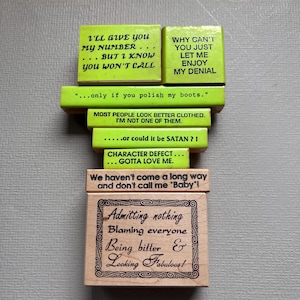 I'LL GIVE YOU
MY NUMBER . . .
. . . BUT I KNOW
YOU WON'T CALL
WHY CAN'T
YOU JUST
LET ME
ENJOY
MY DENIAL
"...only if you polish my boots."
MOST PEOPLE LOOK BETTER CLOTHED.
I'M NOT ONE OF THEM.
.....or could it be SATAN ? !
CHARACTER DEFECT . . .
. . . . GOTTA LOVE ME.
We haven't come a long way
and don't call me "Baby"!
Admitting nothing
Blaming everyone
Being bitter &
Looking Fabulous!